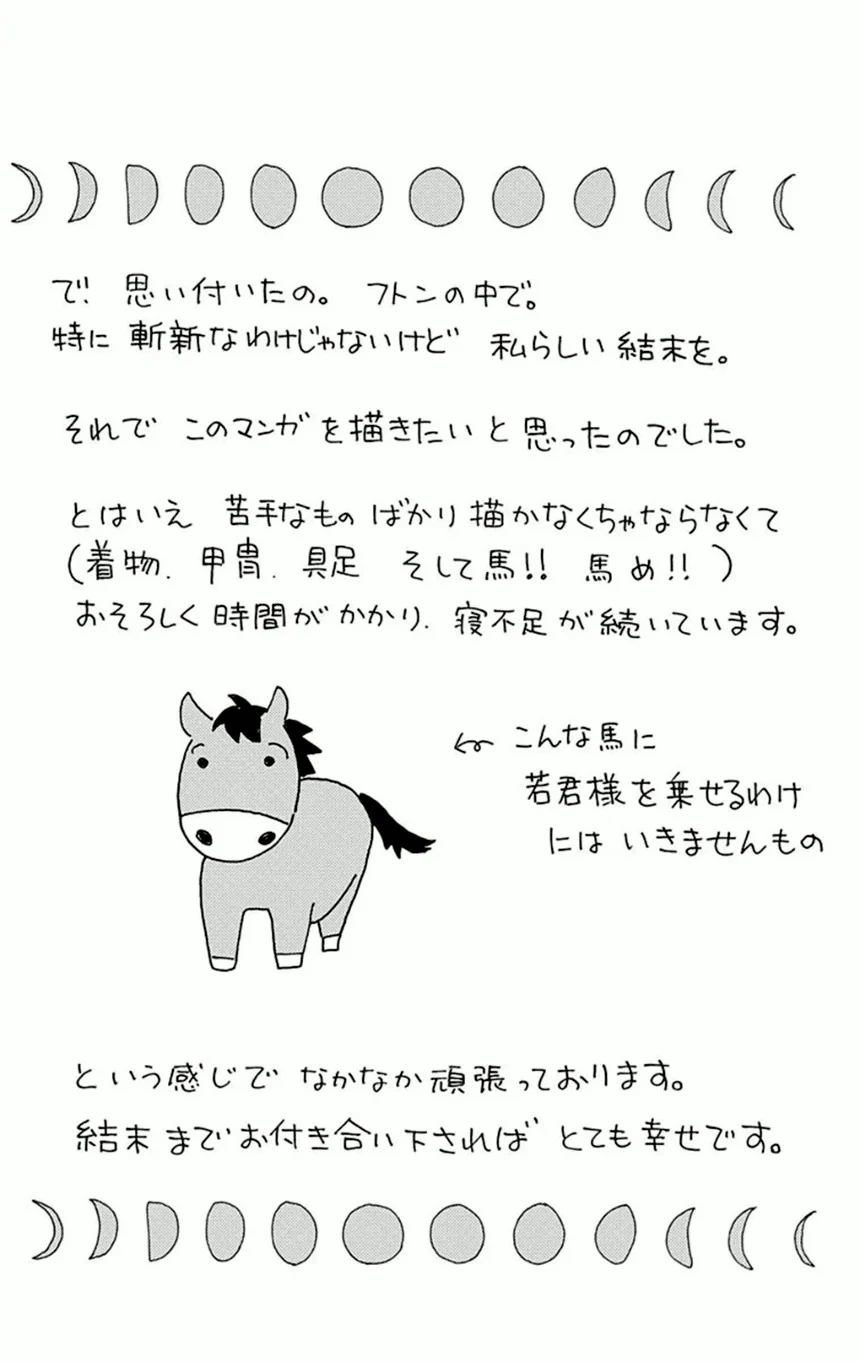 で、思い付いたの。 フトンの中で。
特に 斬新なわけじゃないけど 私らしい 結末を。
それで このマンガを描きたいと思ったのでした。
とはいえ 苦手なものばかり描かなくちゃならなくて
(着物、甲冑、具足 そして馬!! 馬め!!)
おそろしく時間がかかり、寝不足が続いています。
← こんな馬に
若君様を乗せるわけ
には いきませんもの
という感じで なかなか頑張っております。
結末までお付き合い下されば とても幸せです。